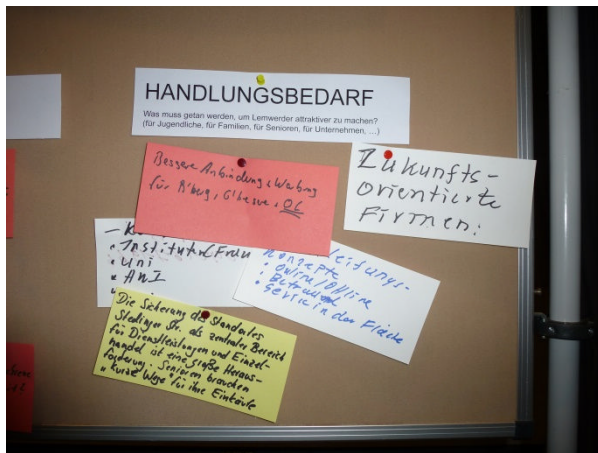 HANDLUNGSBEDARF
Was muss getan werden, um Lemwerder attraktiver zu machen?
(für Jugendliche, für Familien, für Senioren, für Unternehmen, ...)
Bessere Anbindung & Werbung
für
OL
Zukunfts-
orientierte
Firmen:
• Institut
• Uni
• AWI
leitungs-
Konzepte
• Online/Offline
• Service in der Fläche
Die Sicherung des Standortes
Stedinger Str. als zentraler Bereich
für Dienstleistungen und Einzel-
handel ist eine große Heraus-
forderung. Senioren brauchen
„kurze Wege" für ihre Einkäufe